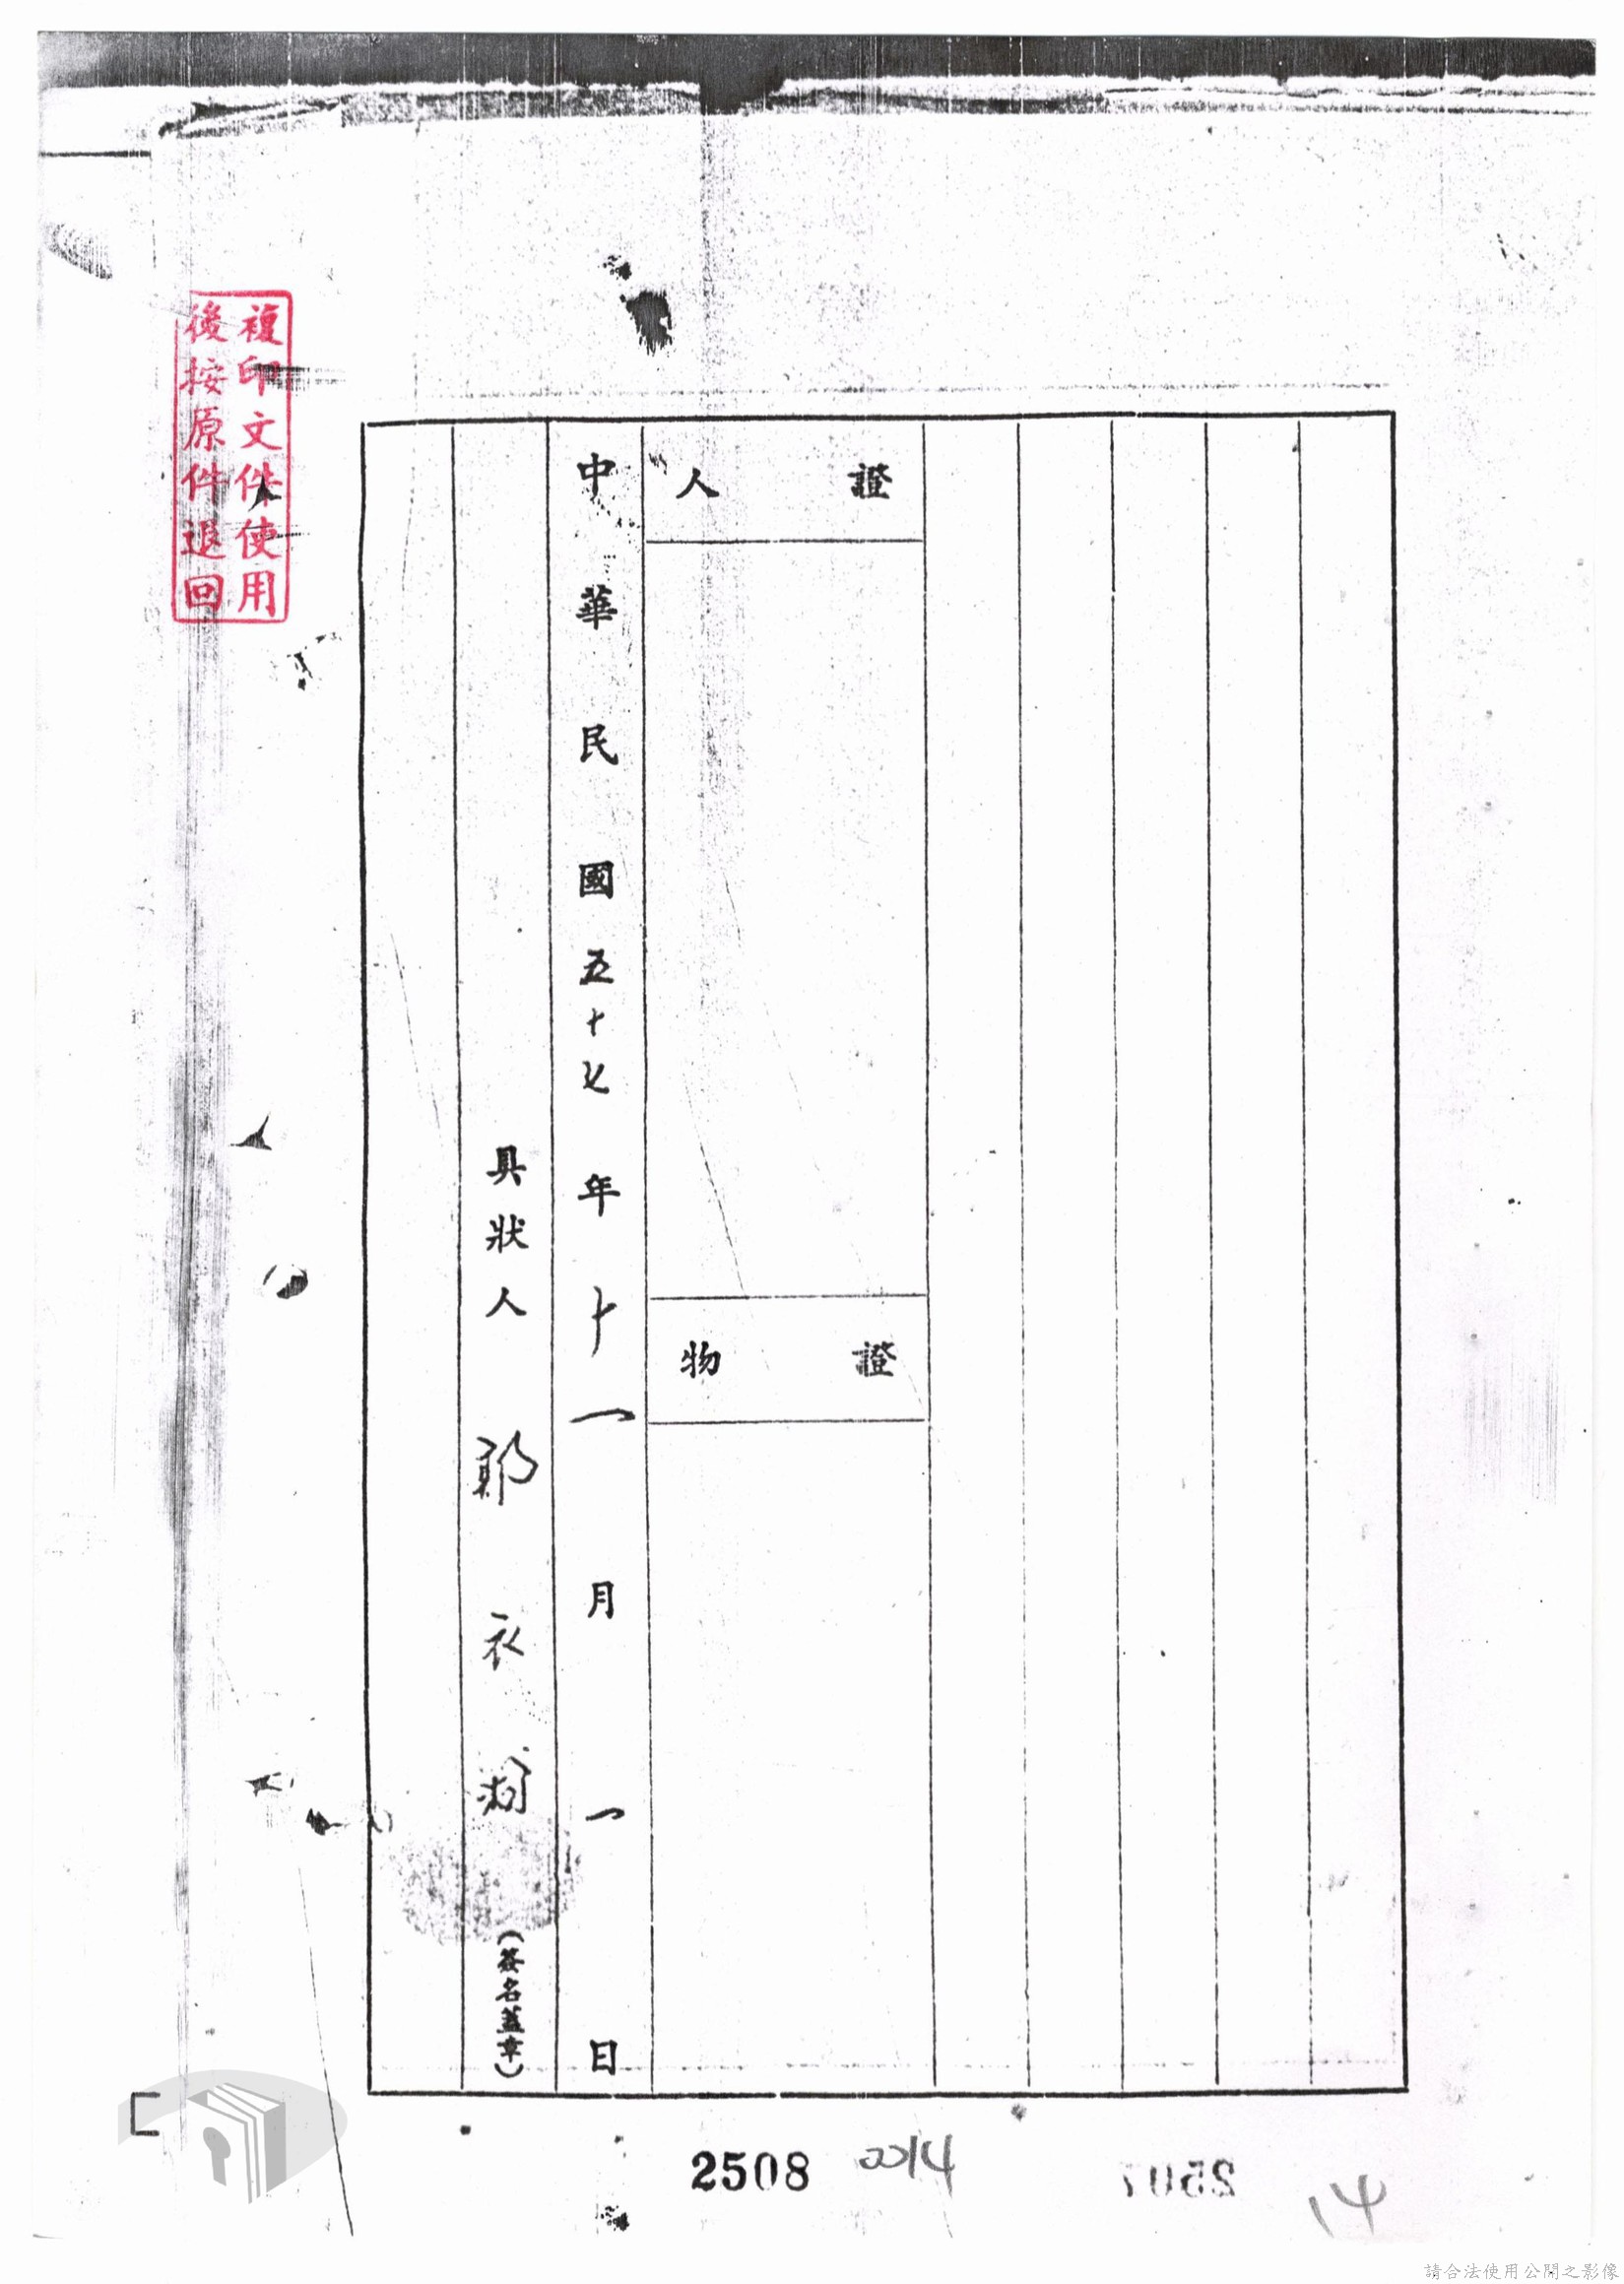 證人
證物
中華民國五十七年十一月一日
具狀人 郭衣洞 (簽名蓋章)
複印文件使用
後按原件退回
2508
0014
2507
14
請合法使用公開之影像